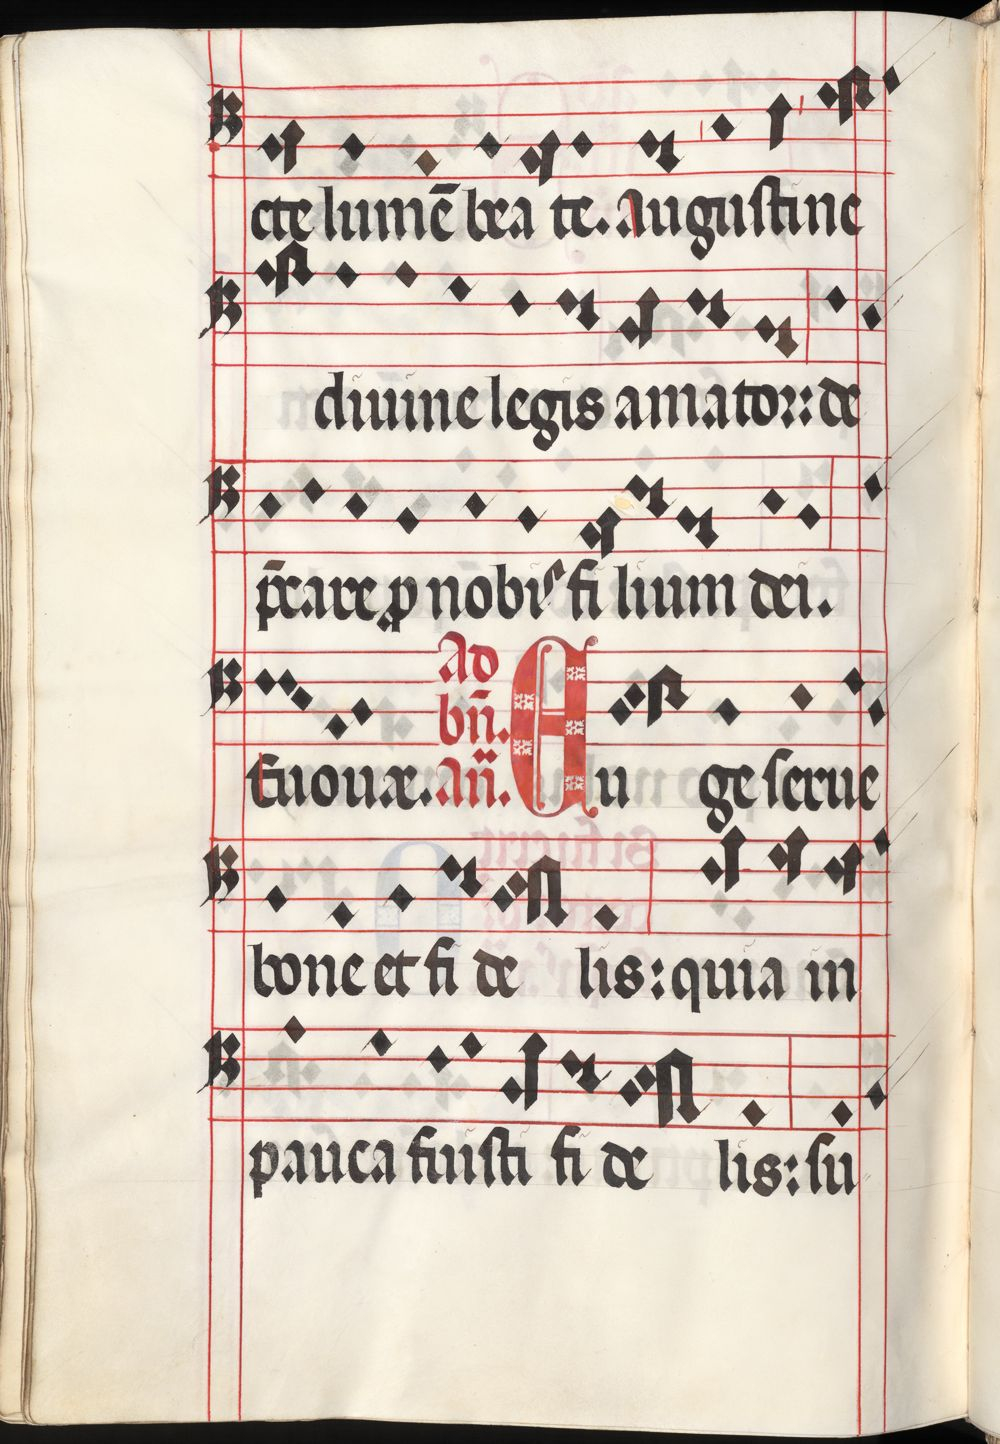 cte lumē bea te. Augustine
diuine legis amator: de
p̄care ꝓ nobis fi lium dei.
Ad
bn̄.
Euouae. an̄. Eu ge serue
bone et fi de lis: quia in
pauca fuisti fi de lis: su